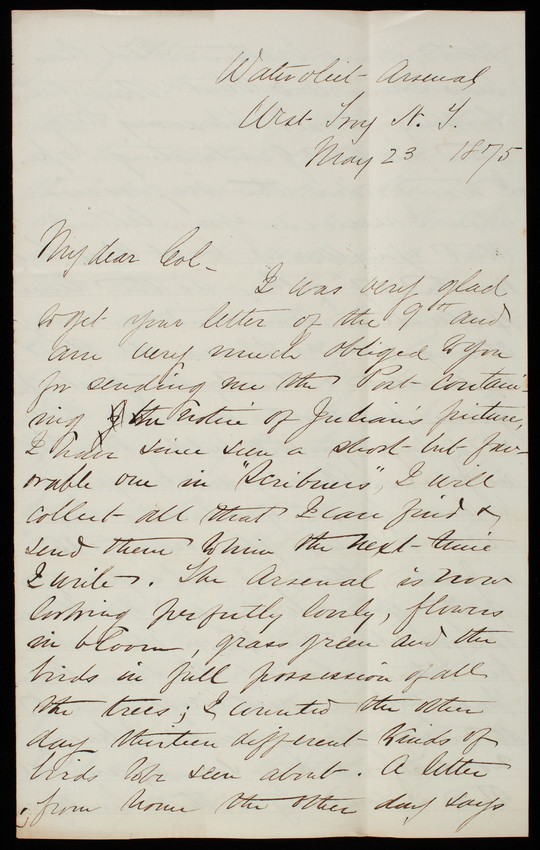 Watervliet Arsenal
West Troy N. Y.
May 23 1875
My dear Col-
I was very glad
to get your letter of the 9th and
am very much obliged to you
for sending me the Post contain-
ing the notice of Julian's picture,
I have since seen a short but fav-
orable one in "Scribners", I will
collect all that I can find &
send them to him the next time
I write. The Arsenal is now
looking perfectly lovely, flowers
in bloom, grass green and the
birds in full possession of all
the trees; I counted the other
day thirteen different kinds of
birds to be seen about. A letter
from home the other day says